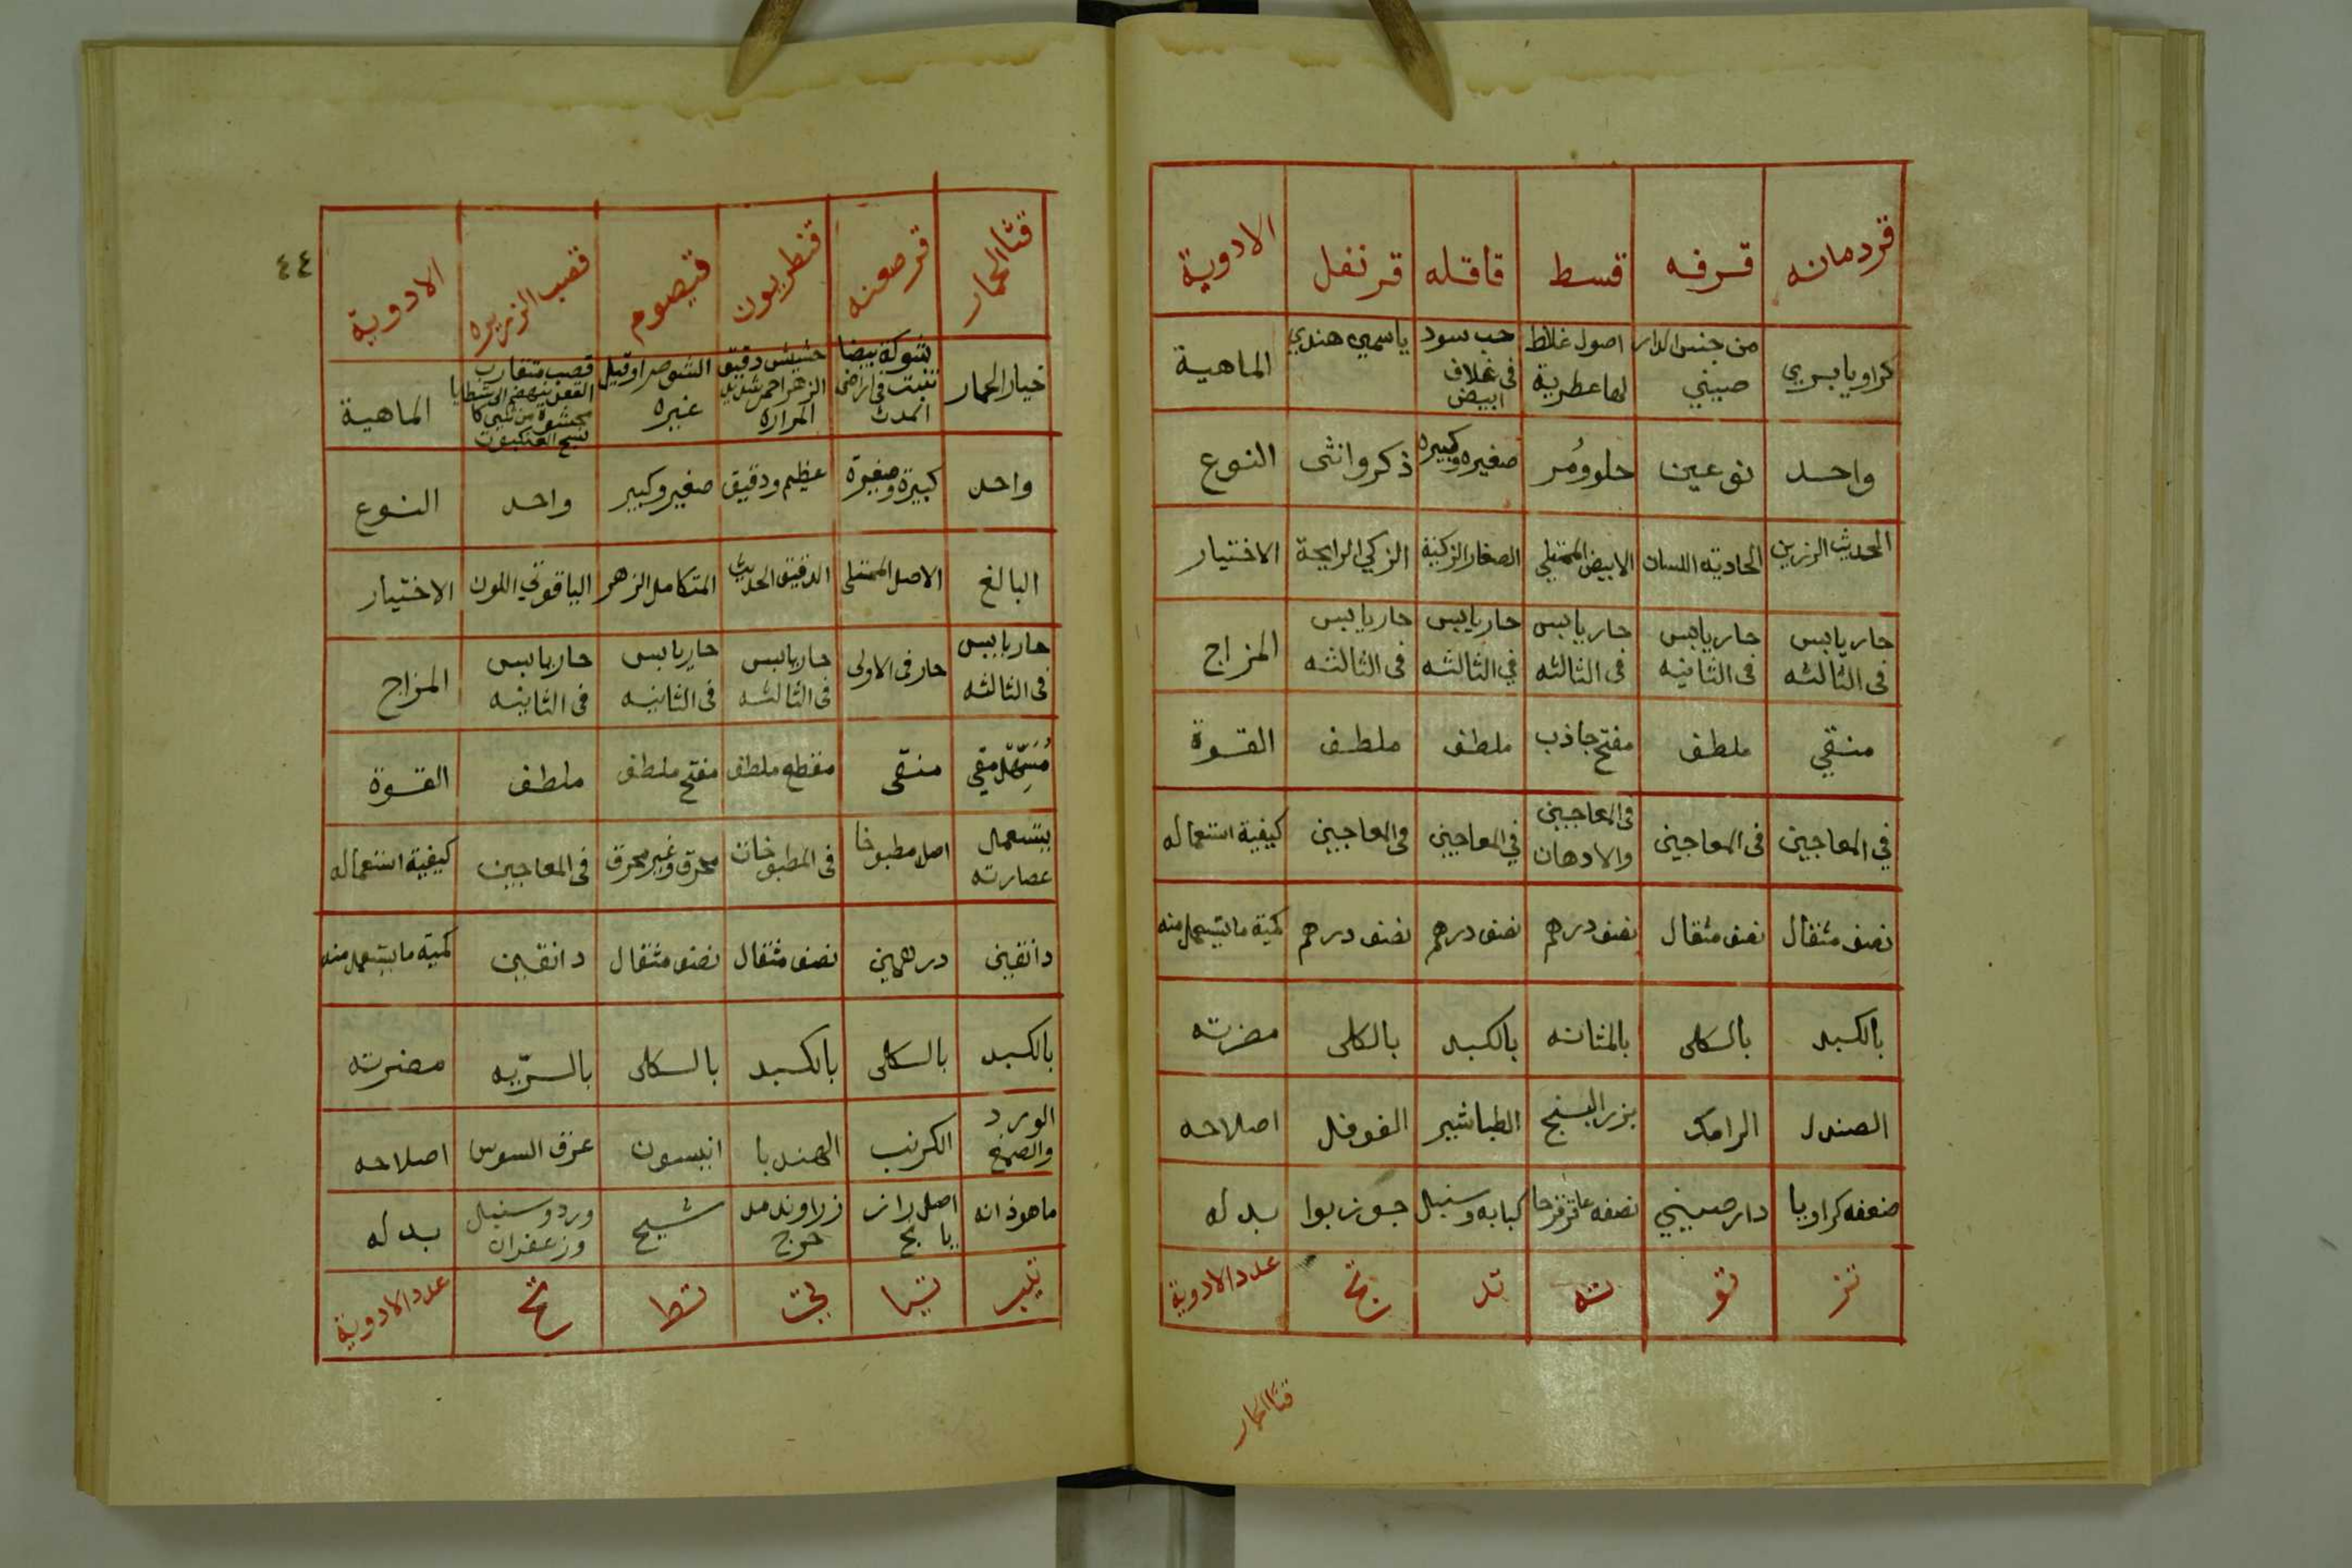 قردمانه قرفه قسط قاقله قرنفل الادوية
كراويا بري من جنس الدار صيني اصول غلاظ لها عطرية حب سود في غلاف ابيض ياسمين هندي الماهية
واحد نوعين حلو ومُر صغيره وكبيره ذكر وانثى النوع
الحديث الرزين الحاديه اللسان الابيض الممتلي الصغار الزكية الزكي الرايحة الاختيار
حار يابس في الثالثه حار يابس في الثانيه حار يابس في الثالثه حار يابس في الثالثه حار يابس في الثالثه المزاج
منقي ملطف مفتح جاذب ملطف ملطف القوة
في المعاجين في المعاجين في المعاجين والادهان في المعاجين في المعاجين كيفية استعماله
نصف مثقال نصف مثقال نصف درهم نصف درهم نصف درهم كمية ما يستعمل منه
بالكبد بالكلى بالمثانه بالكبد بالكلى مضرته
الصندل الرامك بزر البنج الطباشير الفوفل اصلاحه
ضعفه كراويا دار صيني نصفه عاقرقرحا كبابه وسنبل جوز بوا بدله
تز تو ته تد تج عدد الادوية
قثا الحمار
٤٤
قثا الحمار قرصعنه قنطريون قيصوم قصب الزريره الادوية
خيار الحمار شوكة بيضا تنبت في اراضي المدث حشيش دقيق الزهر احمر شديد المرارة الشوصرا وقيل غيره قصب متقارب العقد ينهضم الى شظايا محشوة من شي كا نسج العنكبوت الماهية
واحد كبيرة وصغيرة عظيم ودقيق صغير وكبير واحد النوع
البالغ الاصل الممتلى الدقيق الحديث المتكامل الزهر الياقوتي اللون الاختيار
حار يابس في الثالثه حار في الاولى حار يابس في الثالثه حار يابس في الثانيه حار يابس في الثانيه المزاج
مُسَهِّل مقي منقى مقطع ملطف مفتح ملطف ملطف القوة
يستعمل عصارته اصل مطبوخا في المطبوخات محرق وغير محرق في المعاجين كيفية استعماله
دانقين درهمين نصف مثقال نصف مثقال دانقين كمية ما يستعمل منه
بالكبد بالكلى بالكبد بالكلى بالريه مضرته
الورد والصمغ الكرنب الهندبا انيسون عرق السوس اصلاحه
ماهوذانه اصل راز يا نج زراوند مد حرج شيح ورد وسنبل وزعفران بدله
تيب تيا تي تط تح عدد الادوية